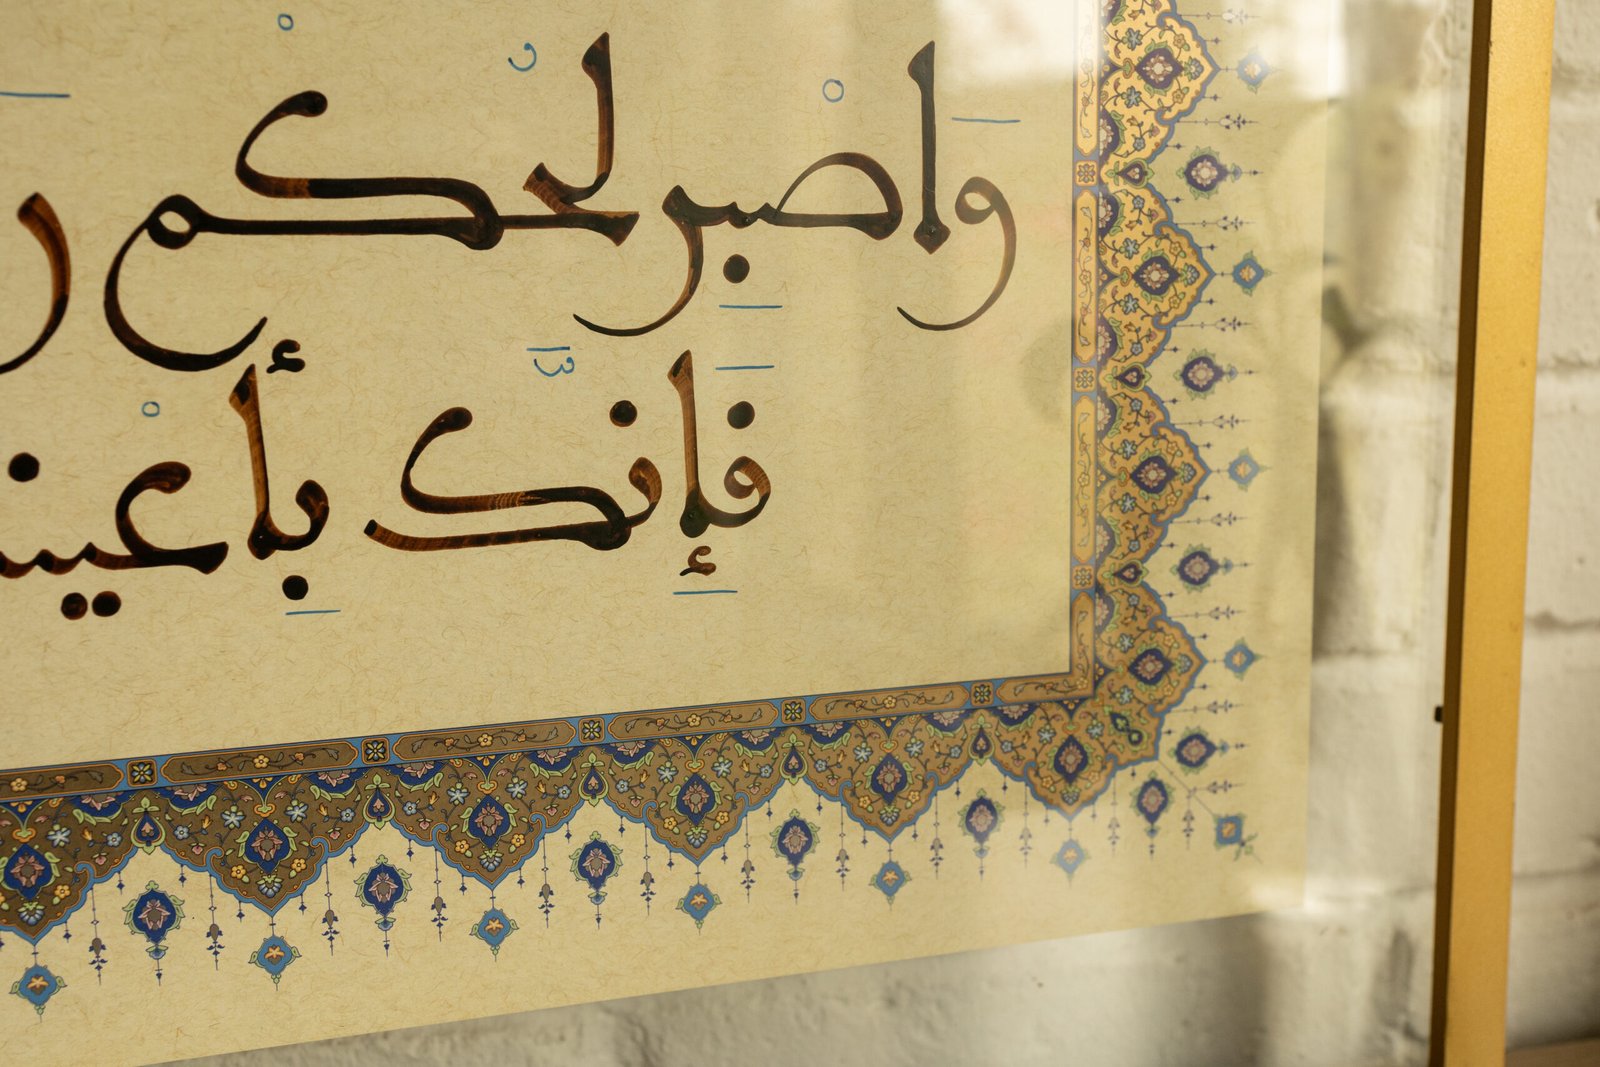 وَاصْبِر لحُكْم ر
فَإِنَّك بِأَعْين